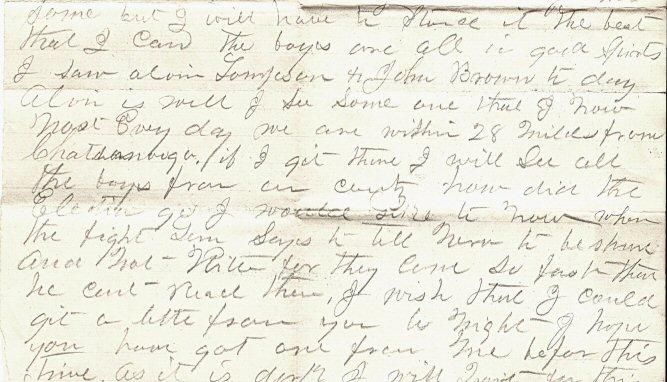 some but I will have to stand it the best
that I can the boys are all in good spirts
I saw alvin Tompson & John Brown to day
Alvin is well I see some one that I now
most Evry day we are within 28 miles from
Chattanooga, if I git there I will See all
the boys from our county how did the
Election go I would like to now when
the fight Jim Says to tell to be shure
And not Rite for they Come So fast that
he cant Read them, I wish that I could
git a letter from you to Night I hope
you have got one from me befor this
time. as it is dark I will for this